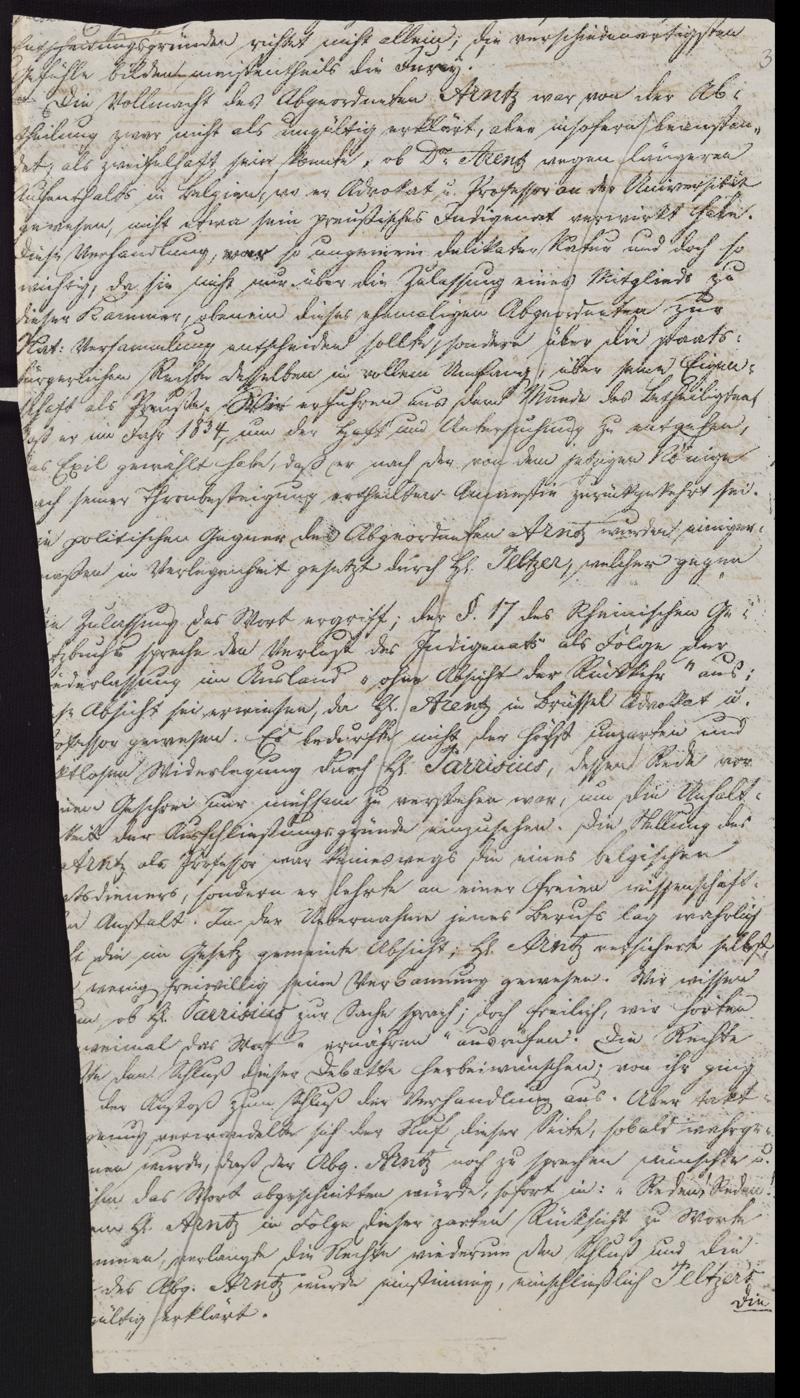 Entscheidungsgründen richtet nicht allein; die verschiedenartigsten
Gefühle bilden meistentheils die Jury.
3
Die Vollmacht des Abgeordneten Arntz war von der Ab:
theilung zwar nicht als ungültig erklärt, aber insofern beanstan„
det, als zweifelhaft sein konnte, ob Dr. Arentz wegen längeren
Aufenthalts in Belgien, wo er Advokat u. Professor an der Universität
gewesen, nicht etwa sein preußisches Indigenat verwirkt habe.
Diese Verhandlung, war so ungemein delikater Natur und doch so
wichtig, da sie nicht nur über die Zulassung eines Mitglieds zu
dieser Kammer, obenein dieses ehemaligen Abgeordneten zur
Nat: Versammlung entscheiden sollte, sondern über die staats:
bürgerlichen Rechte desselben in vollem Umfang, über seine Eigen:
schaft als Preuße. Wir erfuhren aus dem Munde des Betheiligten
daß er im Jahr 1834, um der Haft und Untersuchung zu entgehen,
das Exil gewählt habe, daß er nach der von dem jetzigen Könige
nach seiner Thronbesteigung ertheilten Amnestie zurückgekehrt sei.
Die politischen Gegner des Abgeordneten Arntz wurden einiger:
maßen in Verlegenheit gesetzt durch H. Peltzer, welcher gegen
die Zulassung das Wort ergriff; der §. 17 des Rheinischen Ge:
setzbuchs spreche den Verlust des Indigenats als Folge der
Niederlassung im Ausland „ohne Absicht der Rückkehr" aus;
diese Absicht sei erwiesen, da H. Arentz in Brüssel Advokat u.
Professor gewesen. Es bedurfte nicht der höchst unzarten und
taktlosen Widerlegung durch H. Parrisius, dessen Rede vor
einem Geschrei nur mühsam zu verstehen war, um die Unhalt:
barkeit der Ausschließungsgründe einzusehen. Die Stellung des
Arntz als Professor war keineswegs die eines belgischen
Staatsdieners, sondern er lehrte an einer freien wissenschaft:
lichen Anstalt. In der Uebernahme jenes Berufs lag wahrlich
nicht die im Gesetz gemeinte Absicht; H. Arntz versicherte selbst,
wie wenig freiwillig seine Verbannung gewesen. Wir wissen
kaum, ob H. Parrisius zur Sache sprach; doch freilich, wir hörten
zweimal das Wort „ernähren" ausrufen. Die Rechte
den Schluß dieser Debatte herbeiwünschen; von ihr ging
der Anstoß zum Schluß der Verhandlung aus. Aber takt:
genug verwandelte sich der Ruf dieser Seite, sobald wahrge:
nommen wurde, daß der Abg. Arntz noch zu sprechen wünschte u.
ihm das Wort abgeschnitten würde, sofort in: „Reden! Reden!
H. Arntz in Folge dieser zarten Rücksicht zu Worte
gekommen, verlangte die Rechte wiederum den Schluß und die
des Abg. Arntz wurde einstimmig, einschließlich Peltzers
gültig erklärt.
Die